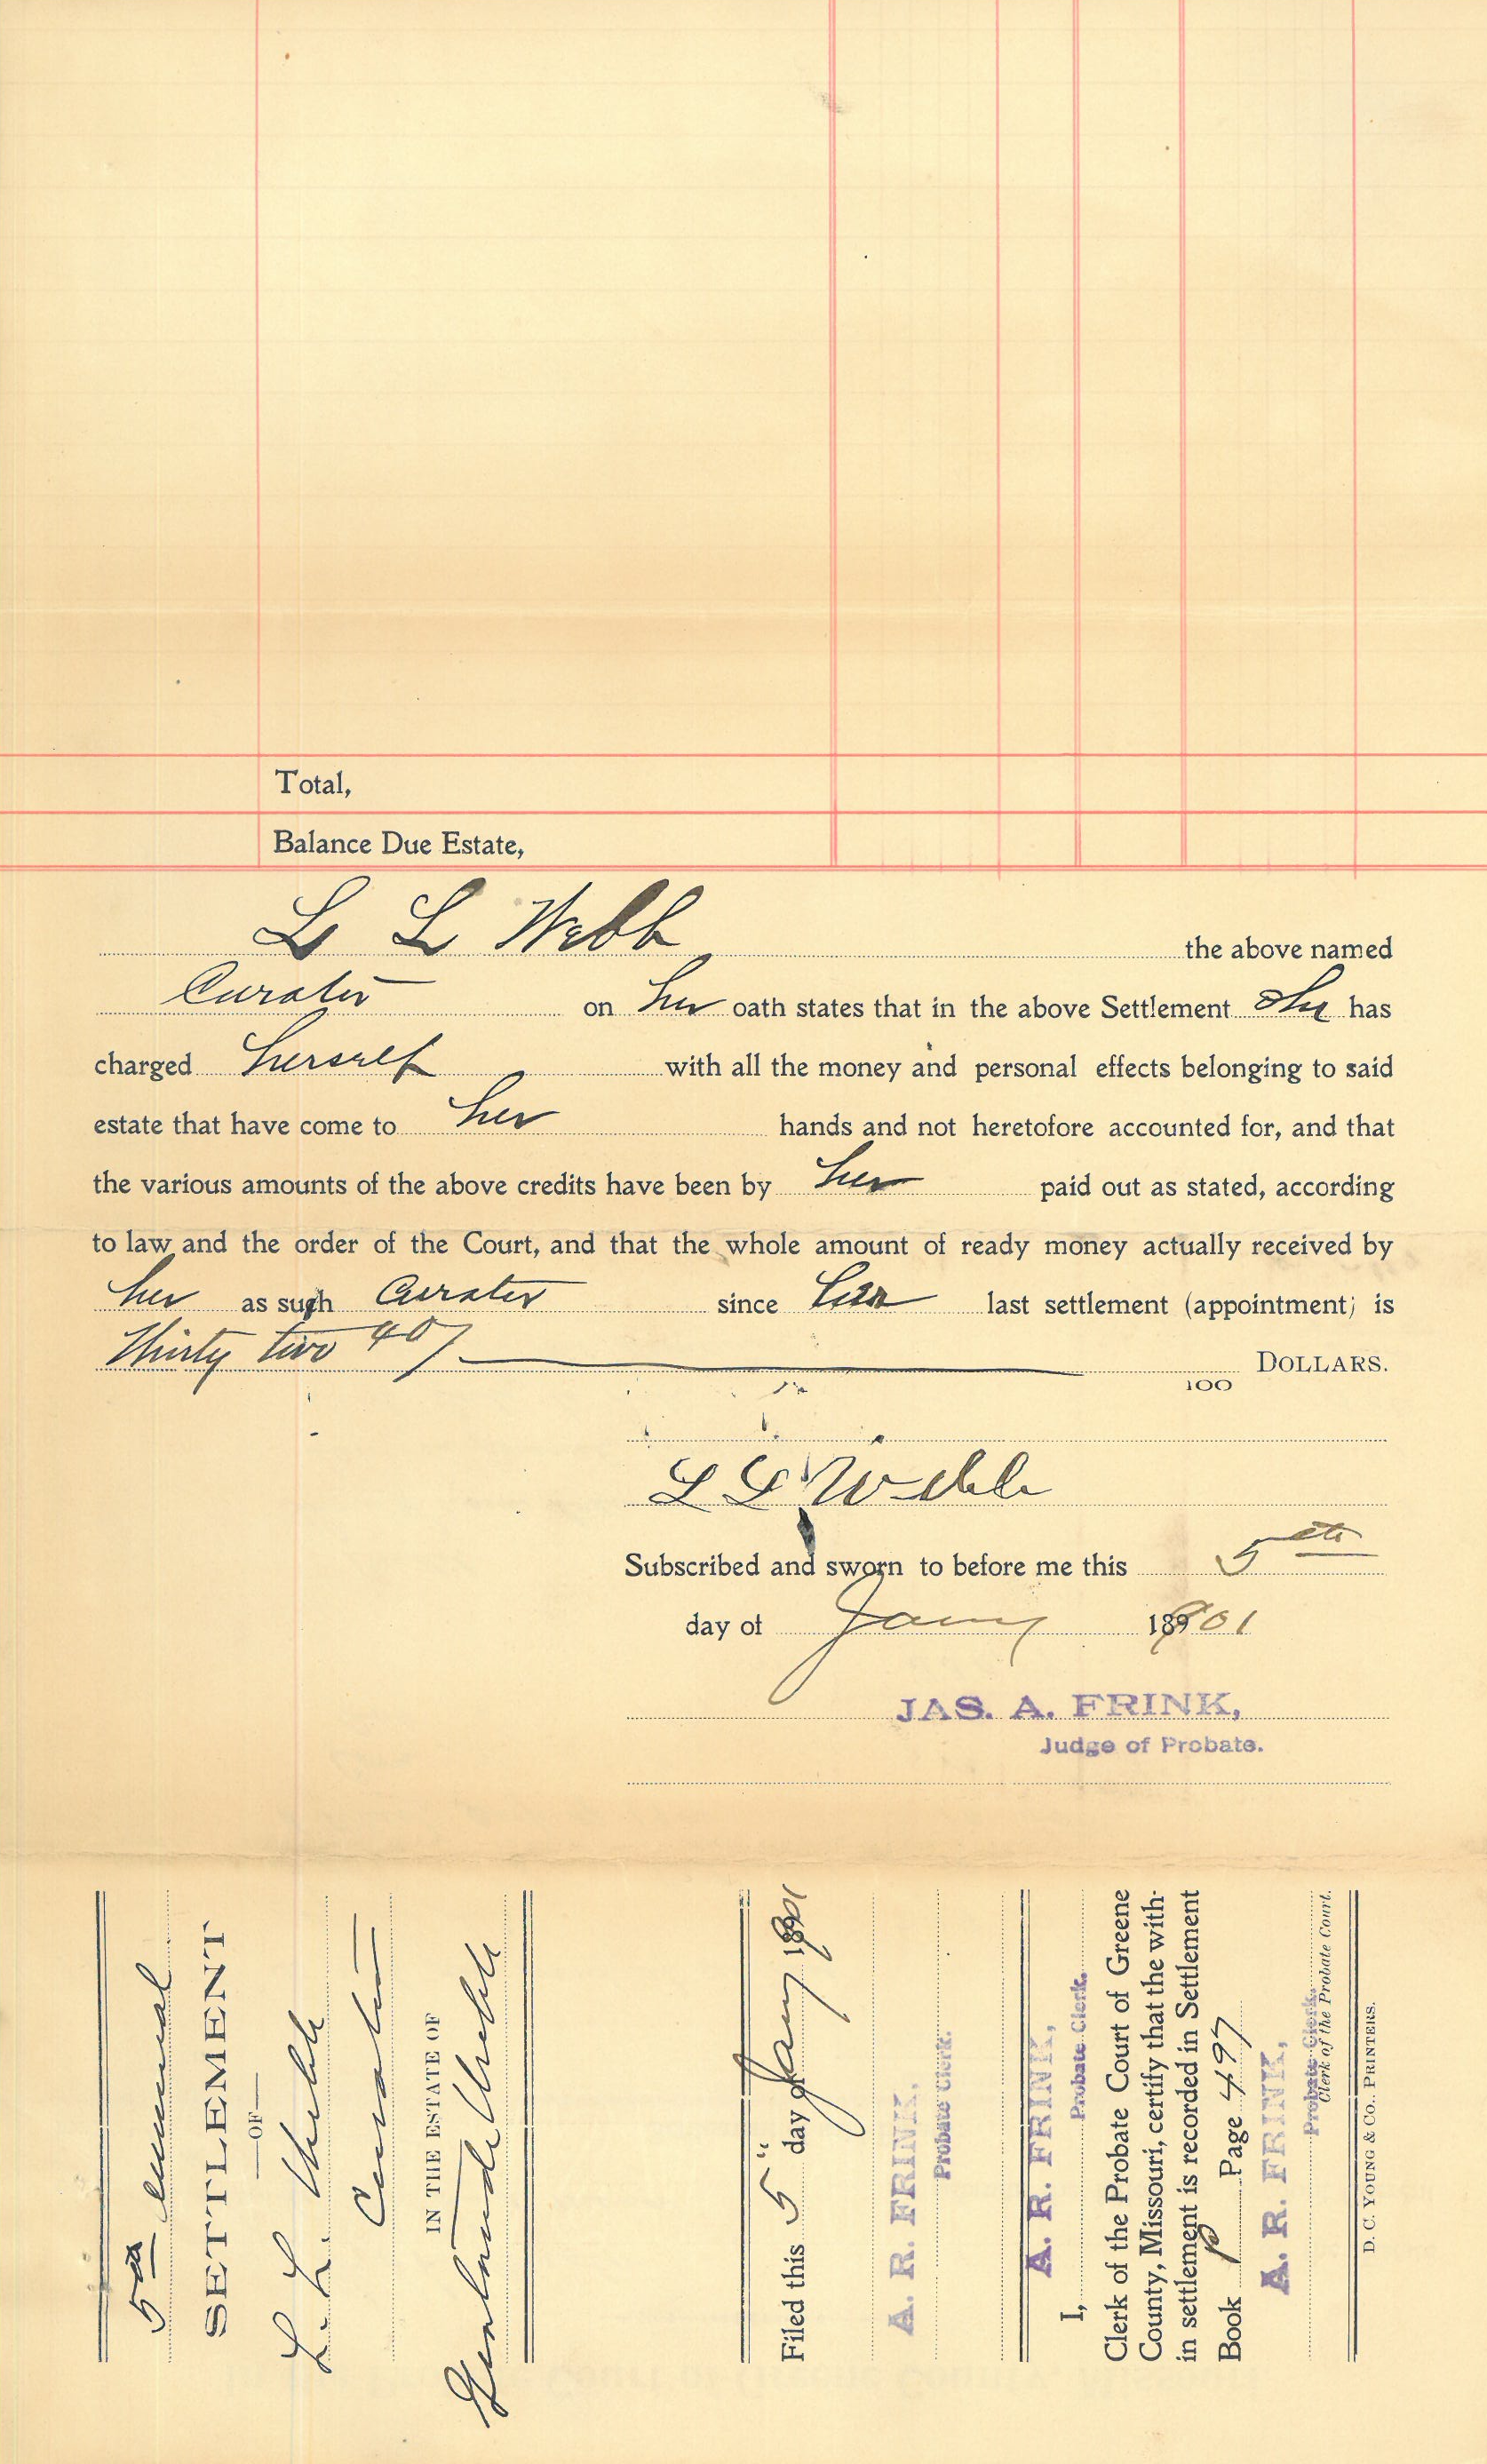 Total,
Balance Due Estate,
L L Webb the above named
Curator on her oath states that in the above Settlement She has
charged herself with all the money and personal effects belonging to said
estate that have come to her hands and not heretofore accounted for, and that
the various amounts of the above credits have been by her paid out as stated, according
to law and the order of the Court, and that the whole amount of ready money actually received by
her as such Curator since last settlement (appointment) is
Thirty two 40/ DOLLARS.
100
L L Webb
Subscribed and sworn to before me this 5th
day of Jany 1901
JAS. A. FRINK,
Judge of Probate.
5th annual
SETTLEMENT
—OF—
L. L. Webb
Curator
IN THE ESTATE OF
Webb
Filed this 5" day of Jany 1901
A. R. FRINK,
Probate Clerk.
A. R. FRINK,
I, Probate Clerk.
Clerk of the Probate Court of Greene
County, Missouri, certify that the with-
in settlement is recorded in Settlement
Book P Page 497
A. R. FRINK,
Probate Clerk.
Clerk of the Probate Court.
D. C. YOUNG & CO., PRINTERS.